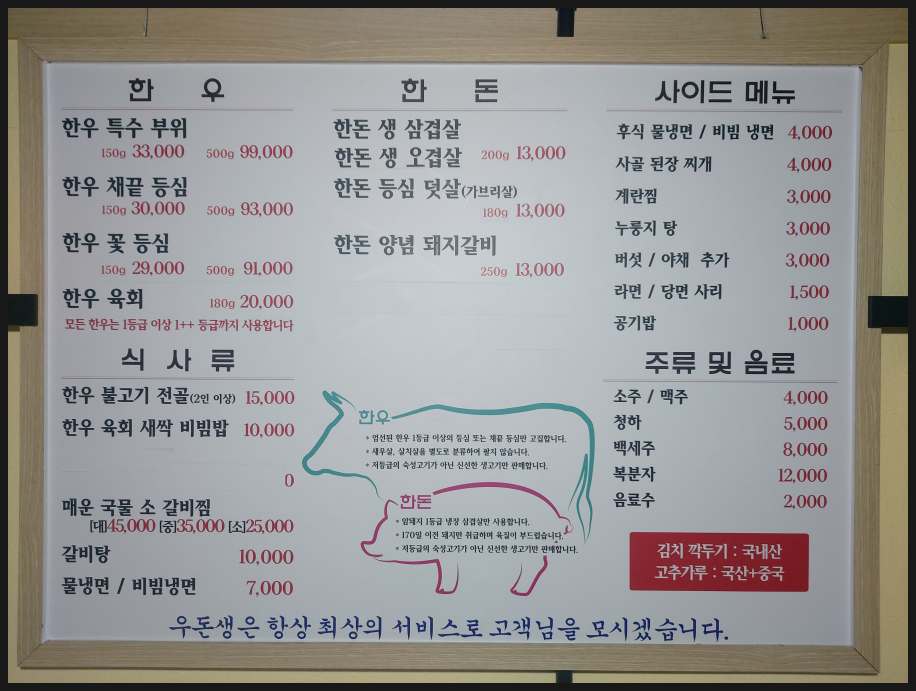 한 우
한우 특수 부위
150g 33,000 500g 99,000
한우 채끝 등심
150g 30,000 500g 93,000
한우 꽃 등심
150g 29,000 500g 91,000
한우 육회 180g 20,000
모든 한우는 1등급 이상 1++ 등급까지 사용합니다
식 사 류
한우 불고기 전골(2인 이상) 15,000
한우 육회 새싹 비빔밥 10,000
0
매운 국물 소 갈비찜
[대]45,000 [중]35,000 [소]25,000
갈비탕 10,000
물냉면 / 비빔냉면 7,000
한 돈
한돈 생 삼겹살
한돈 생 오겹살 200g 13,000
한돈 등심 덧살(가브리살)
180g 13,000
한돈 양념 돼지갈비
250g 13,000
한우
* 엄선된 한우 1등급 이상의 등심 또는 채끝 등심만 고집합니다.
* 새우살, 살치살을 별도로 분류하여 팔지 않습니다.
* 저등급의 숙성고기가 아닌 신선한 생고기만 판매합니다.
한돈
* 암퇘지 1등급 냉장 삼겹살만 사용합니다.
* 170일 이전 돼지만 취급하며 육질이 부드럽습니다.
* 저등급의 숙성고기가 아닌 신선한 생고기만 판매합니다.
사이드 메뉴
후식 물냉면 / 비빔 냉면 4,000
사골 된장 찌개 4,000
계란찜 3,000
누룽지 탕 3,000
버섯 / 야채 추가 3,000
라면 / 당면 사리 1,500
공기밥 1,000
주류 및 음료
소주 / 맥주 4,000
청하 5,000
백세주 8,000
복분자 12,000
음료수 2,000
김치 깍두기 : 국내산
고추가루 : 국산+중국
우돈생은 항상 최상의 서비스로 고객님을 모시겠습니다.